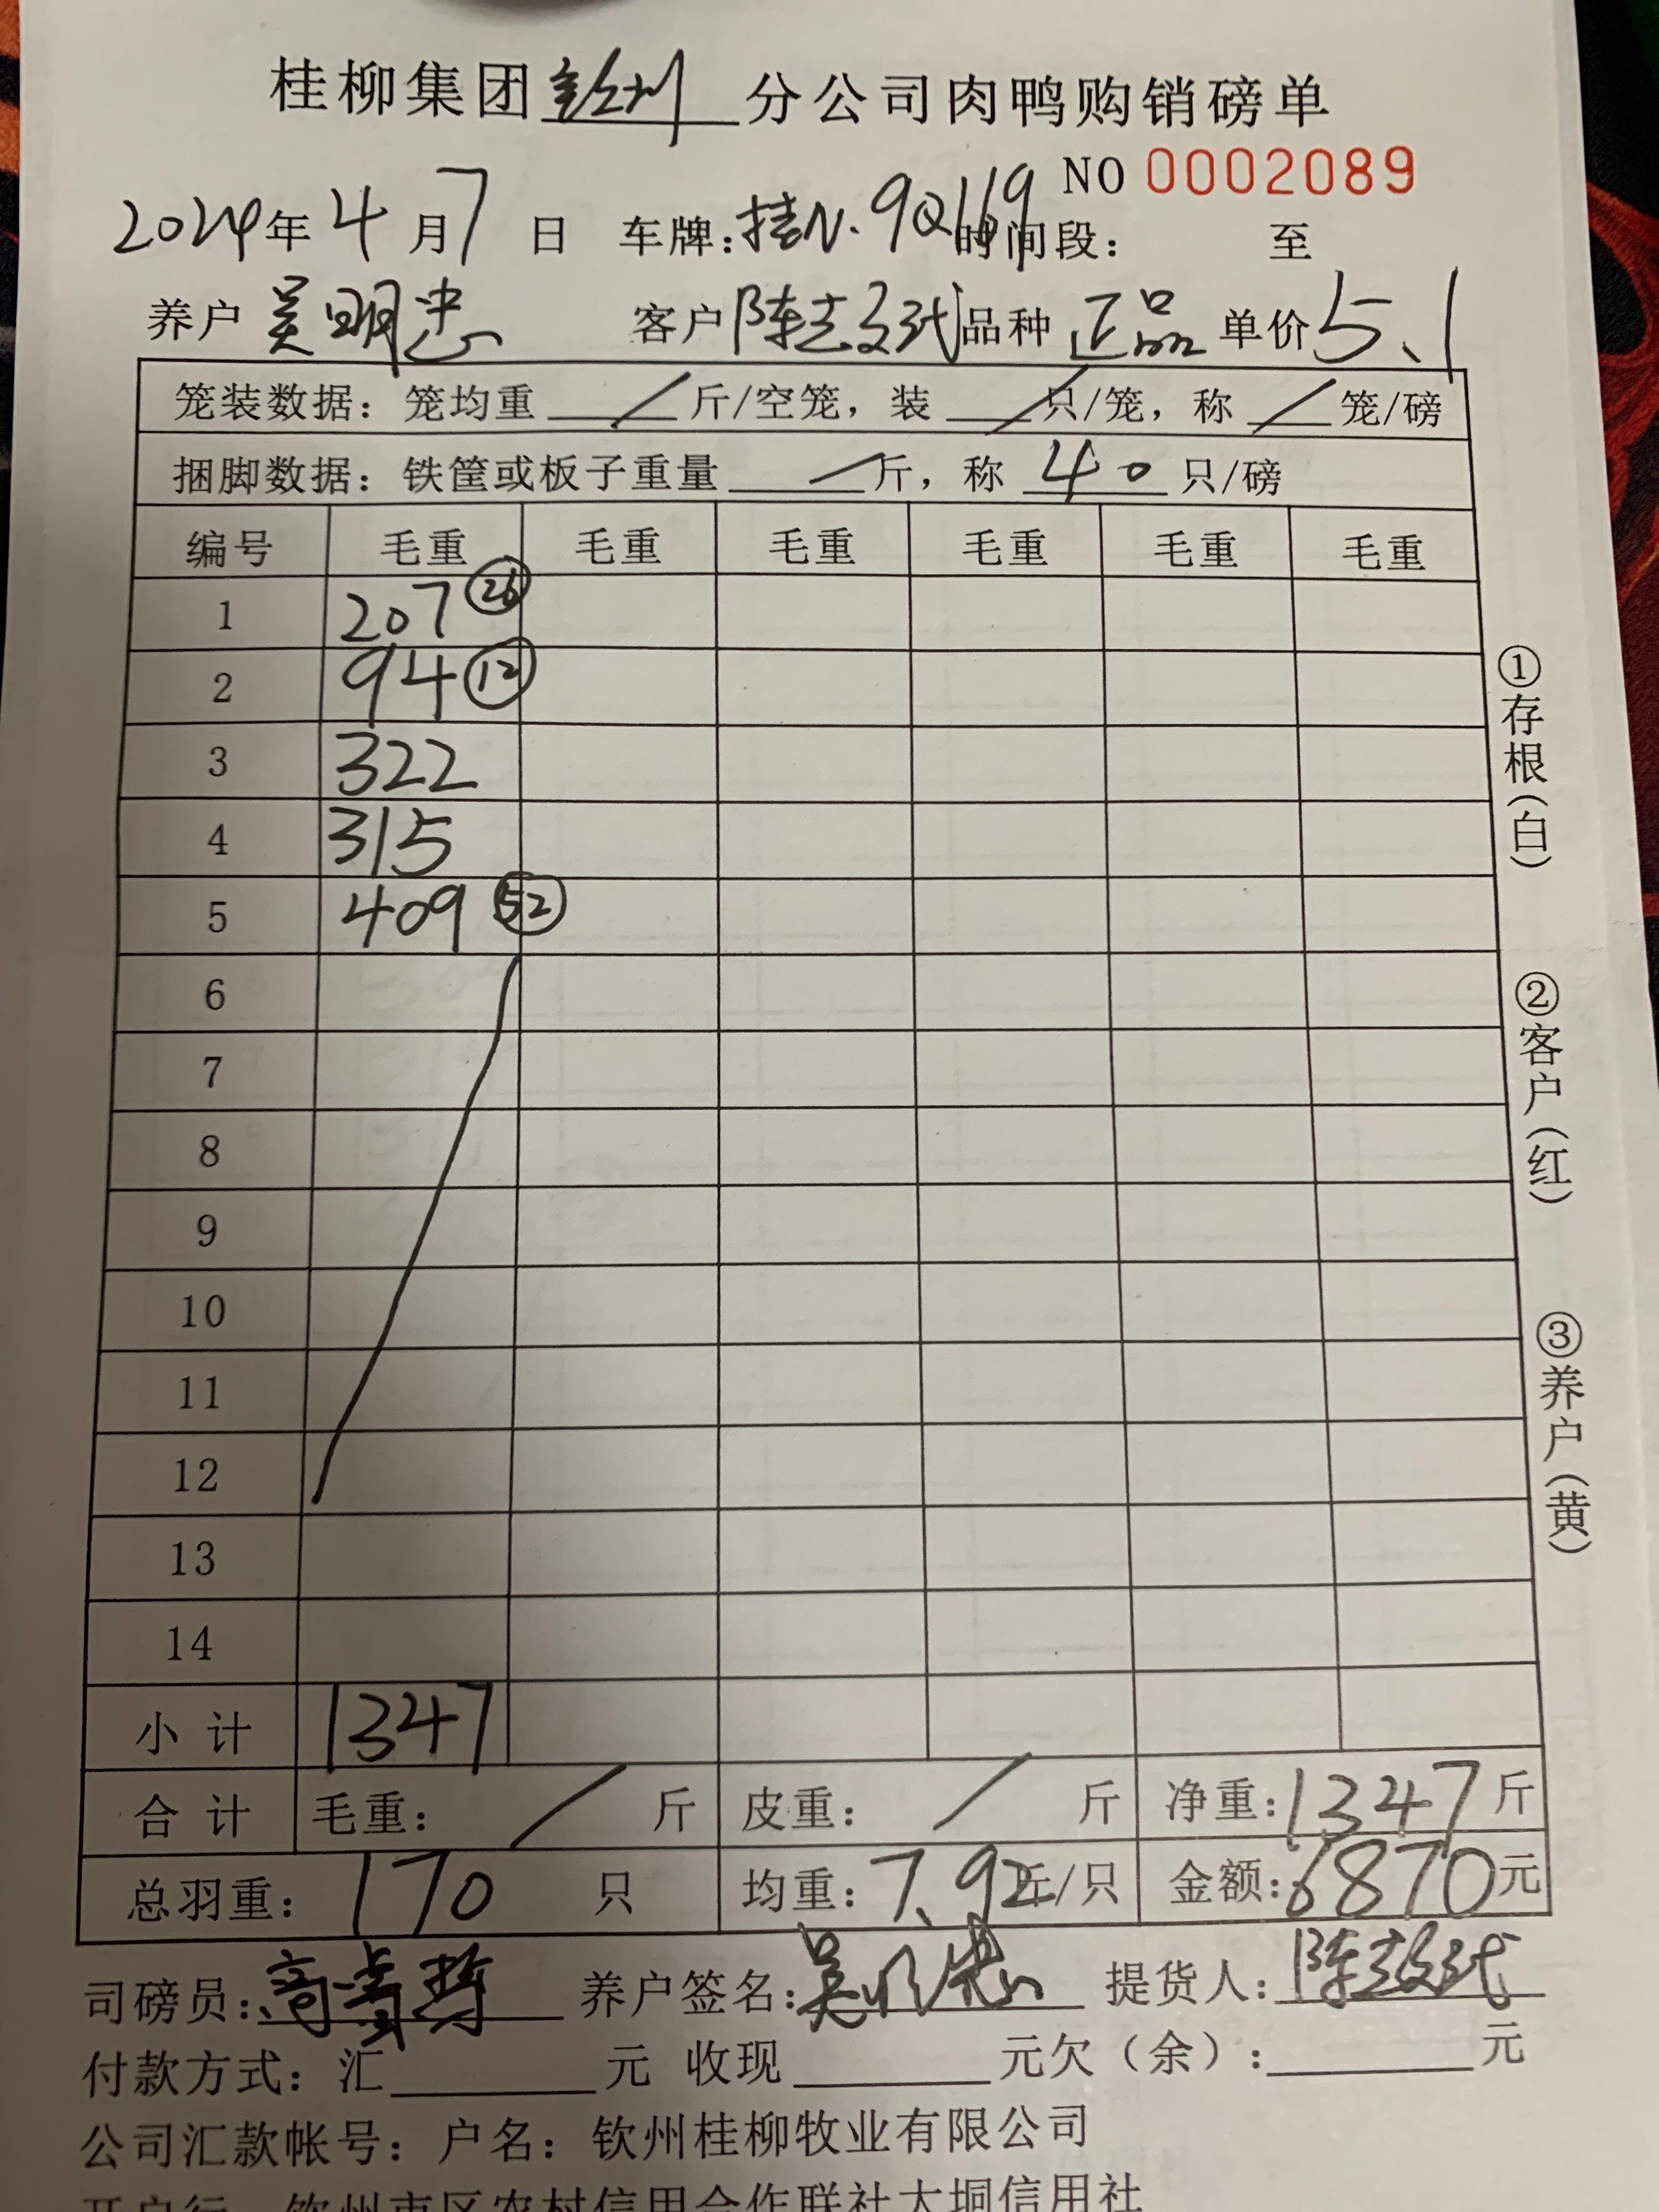 桂柳集团钦州分公司肉鸭购销磅单
NO 0002089
2024年4月7日 车牌:桂N.9Q169 时间段: 至
养户 吴明忠 客户 陈志 品种 正品 单价 5.1
笼装数据: 笼均重 / 斤/空笼, 装 / 只/笼, 称 / 笼/磅
捆脚数据: 铁筐或板子重量 / 斤, 称 40 只/磅
编号 毛重 毛重 毛重 毛重 毛重 毛重
1 207 (26)
2 94 (12)
3 322
4 315
5 409 (52)
6
7
8
9
10
11
12
13
14
小计 1347
合计 毛重: / 斤 皮重: / 斤 净重: 1347 斤
总羽重: 170 只 均重: 7.92 斤/只 金额: 6870 元
司磅员: 养户签名: 吴明忠 提货人: 陈
付款方式: 汇 元 收现 元欠(余): 元
公司汇款帐号: 户名: 钦州桂柳牧业有限公司
开户行 钦州市区农村信用合作联社大垌信用社
①存根(白)
②客户(红)
③养户(黄)